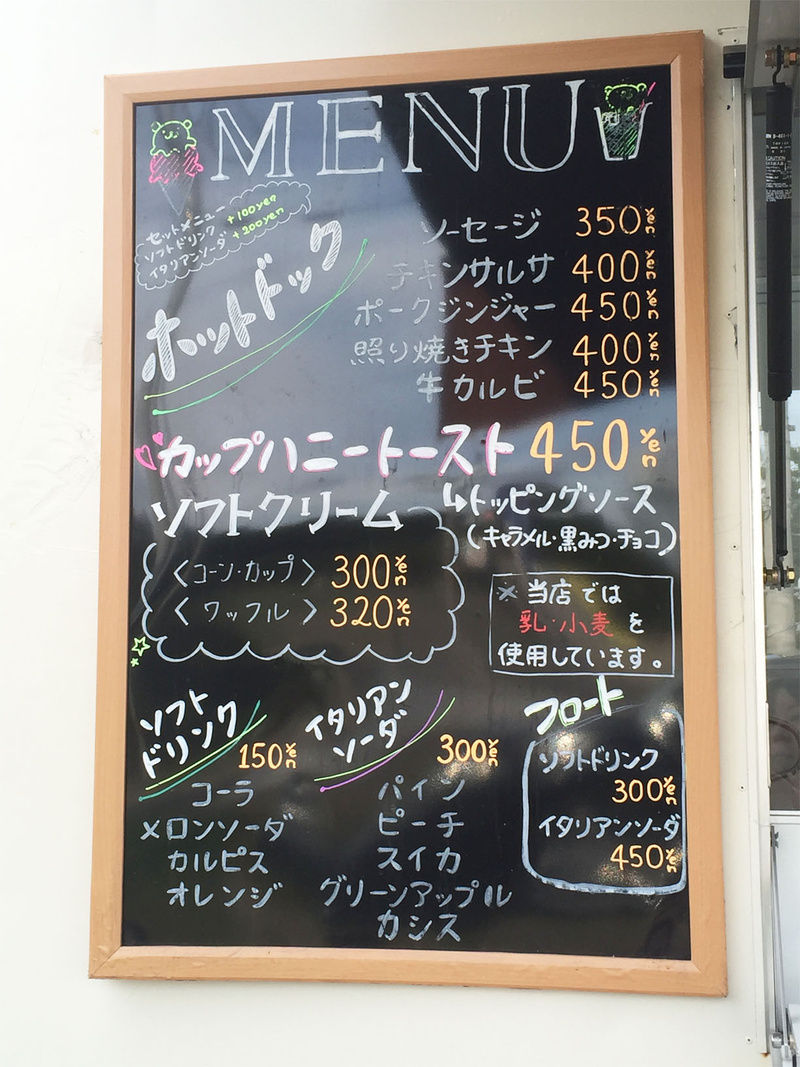 MENU
セットメニュー
ソフトドリンク +100yen
イタリアンソーダ +200yen
ホットドック
ソーセージ 350yen
チキンサルサ 400yen
ポークジンジャー 450yen
照り焼きチキン 400yen
牛カルビ 450yen
カップハニートースト 450yen
↳トッピングソース
(キャラメル・黒みつ・チョコ)
ソフトクリーム
〈コーン・カップ〉 300yen
〈ワッフル〉 320yen
※当店では
乳・小麦を
使用しています。
ソフト
ドリンク
150yen
コーラ
メロンソーダ
カルピス
オレンジ
イタリアン
ソーダ
300yen
パイン
ピーチ
スイカ
グリーンアップル
カシス
フロート
ソフトドリンク
300yen
イタリアンソーダ
450yen